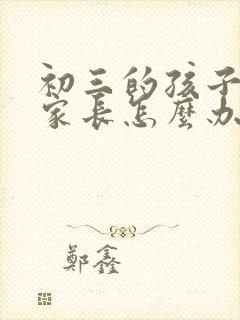 初三的孩子
家長怎麼办
鄭鑫